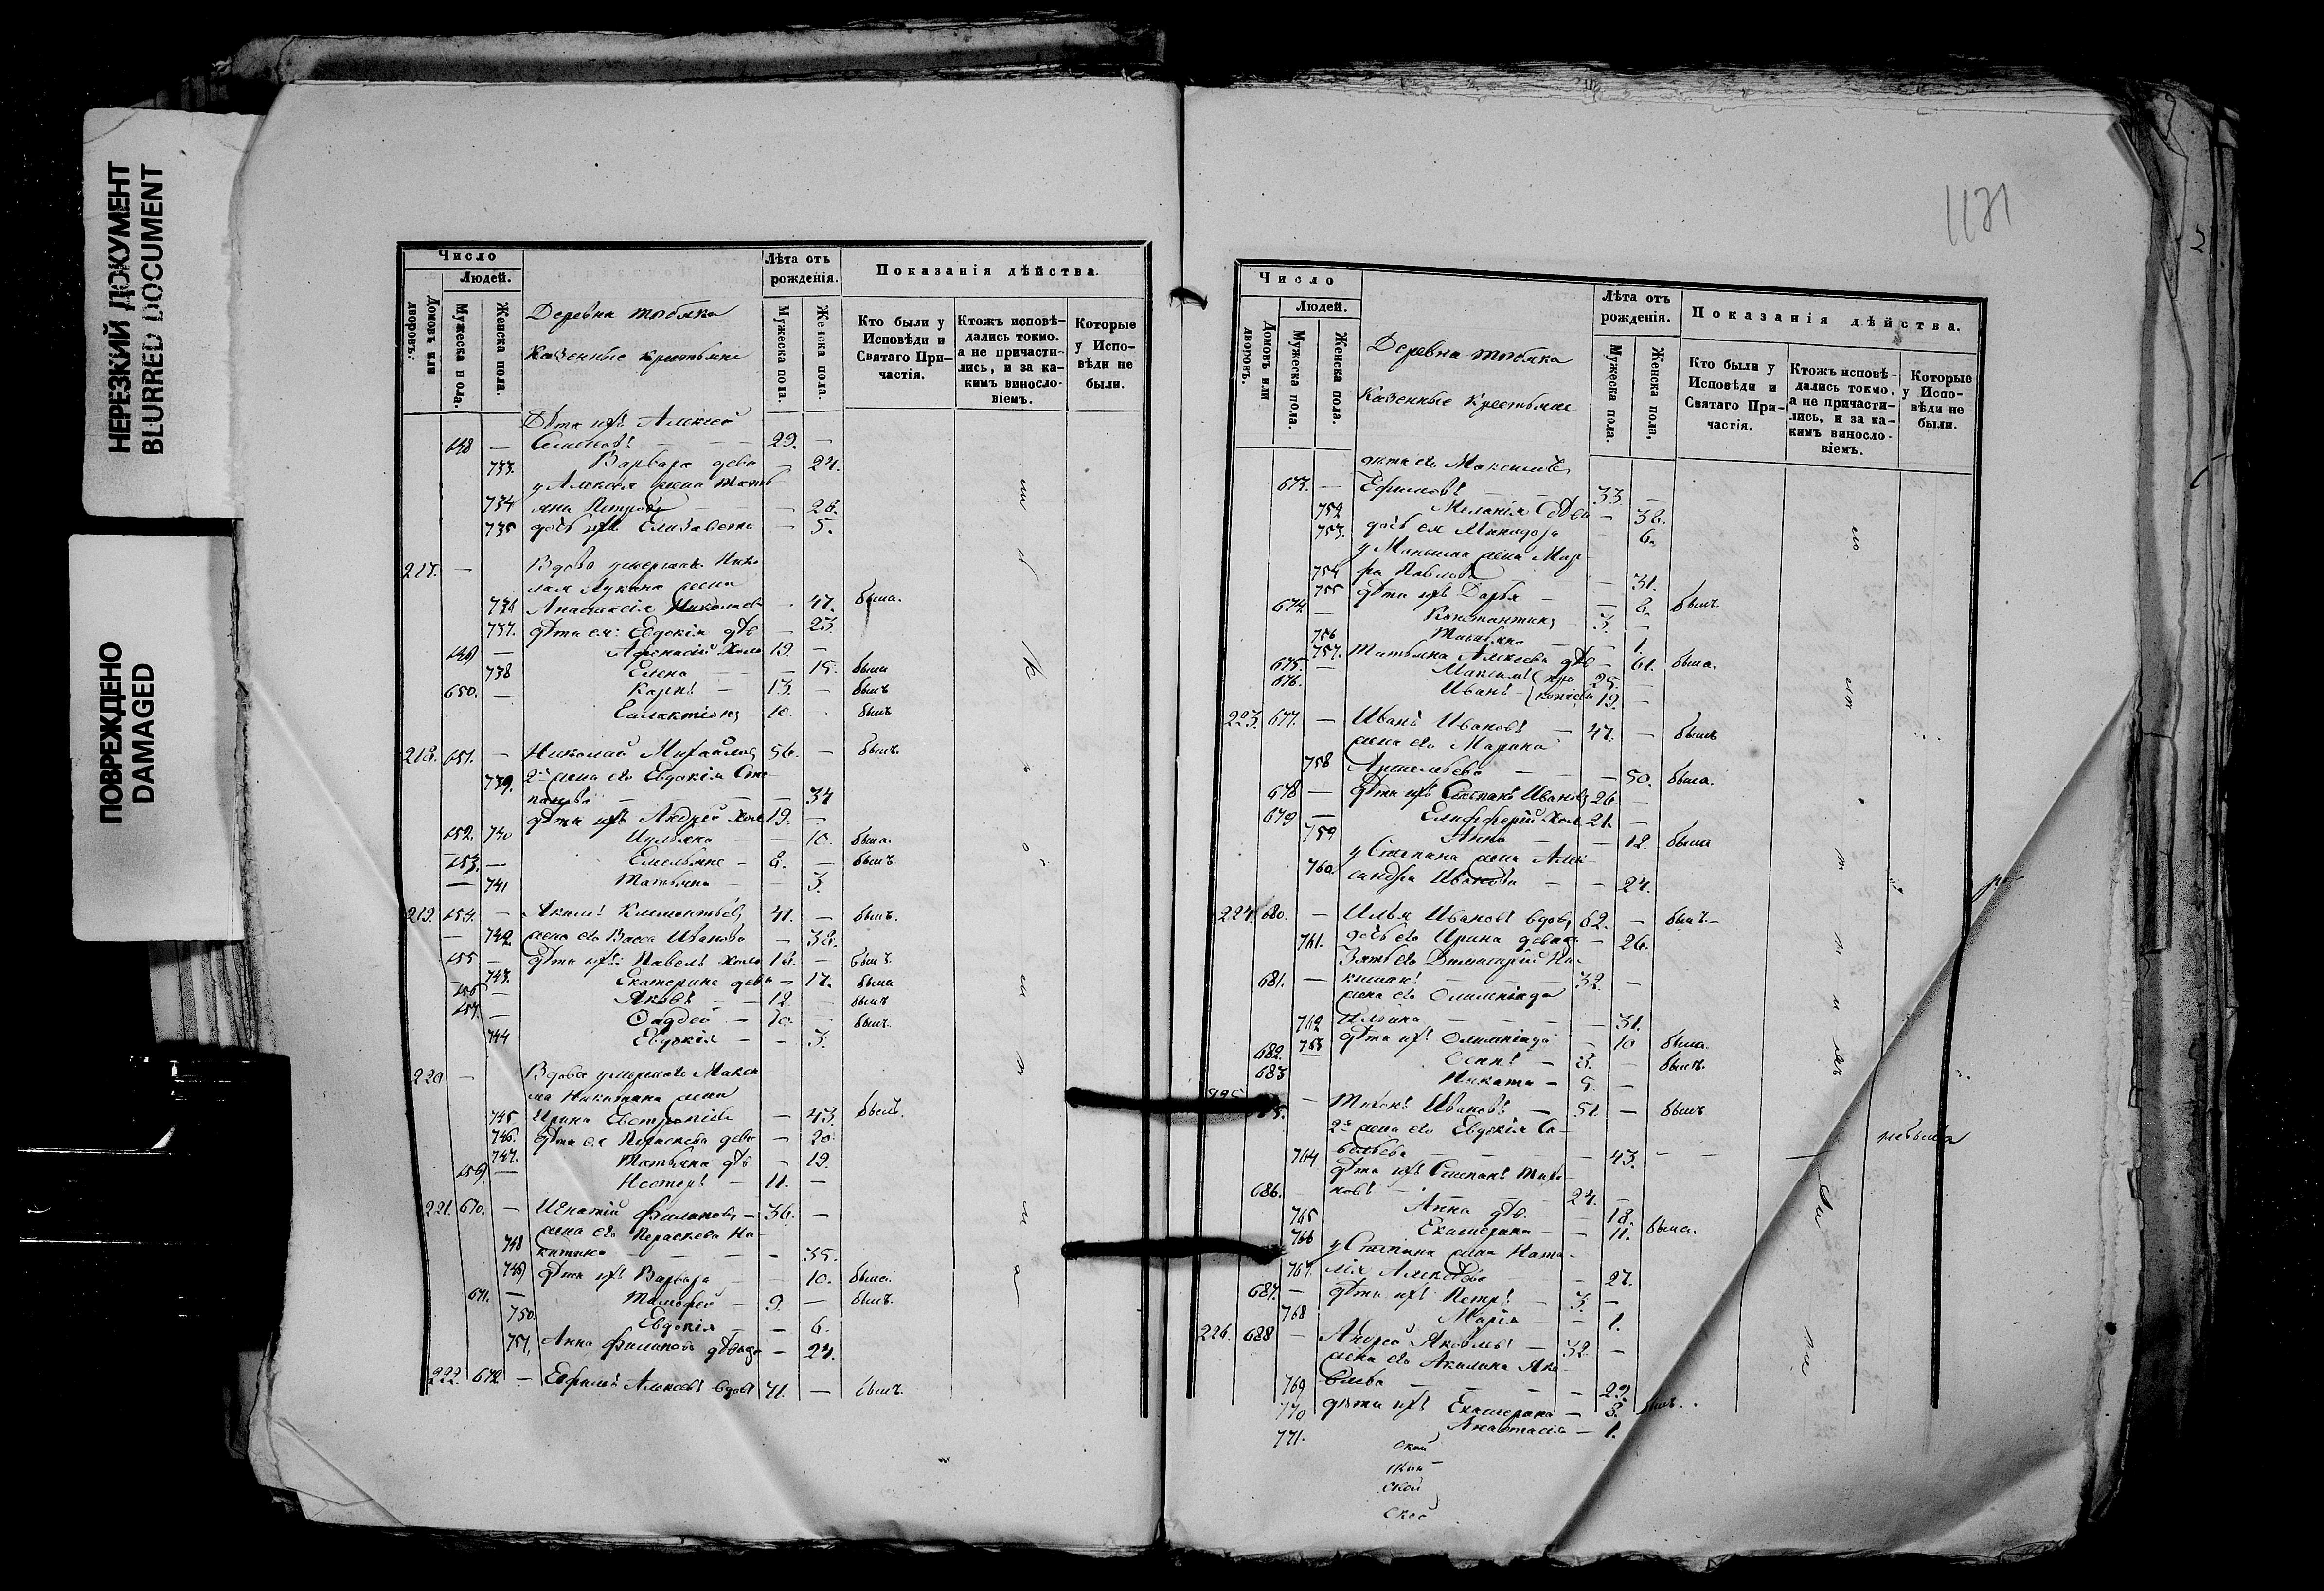 НЕРЕЗКИЙ ДОКУМЕНТ
BLURRED DOCUMENT
ПОВРЕЖДЕНО
DAMAGED
Число
Людей.
Домовъ или дворовъ.
Мужеска пола.
Женска пола.
Деревня
Казенные крестьяне
Лѣта отъ рожденія.
Мужеска пола.
Женска пола.
Показанія дѣйства.
Кто были у Исповѣди и Святаго Причастія.
Ктожъ исповѣдались токмо, а не причастились, и за какимъ винословіемъ.
Которые у Исповѣди не были.
Дѣти ихъ Алексѣй
648 — 29. —
733. Варвара дѣва — 24.
у Алексѣя жена Тать
734 яна Петрова — 28.
735 дочь ихъ Елизавета — 5.
217. — Вдова умершаго Нико
лая Лукина жена
736 Анастасія — 47. была.
737. дѣти ея: Евдокія дѣв — 23.
649 — Афанасій Холо 19. —
738 Елена — 15. была
650. — Карпъ — 13. — былъ
Галактіонъ 10. — былъ
218. 651. — Николай Михайловъ 56. — былъ
739. 2-я жена его Евдокія Сте
панова — 34
дѣти ихъ Андрей Холо 19. —
652. 740 Іульяна — 10. была.
653. — Емельянъ — 8. — былъ
— 741 Татьяна — 3.
219. 654. — Акимъ Клементьевъ 41. — былъ.
— 742. жена его Васса Иванова — 38.
655 — дѣти ихъ: Павелъ Холо 18. — былъ.
743. Екатерина дѣва — 17. была
656 — Яковъ — 12 — былъ
657. — Фаддей — 10. — былъ.
744 Евдокія — 3.
220 — Вдова умершаго Макси
ма Никитина жена
745 Ирина Евстропіева — 43. была.
746. дѣти ея Пераскева дѣва — 20
747. Татьяна дѣ — 19.
659 — Несторъ — 11. —
221. 670. — Игнатій Филиповъ — 36. —
жена его Пераскева Ни-
748 китина — 35.
749 дѣти ихъ Варвара — 10. была.
671. — Тимофей — 9. — былъ.
750. Евдокія — 6.
751. Анна Филипова дѣвица — 24.
222. 672 — Ефимъ Алексѣевъ вдовъ 71. — былъ.
1171
Число
Людей.
Домовъ или дворовъ.
Мужеска пола.
Женска пола.
Деревня
Казенные крестьяне
Лѣта отъ рожденія.
Мужеска пола.
Женска пола,
Показанія дѣйства.
Кто были у Исповѣди и Святаго Причастія.
Ктожъ исповѣдались токмо, а не причастились, и за какимъ винословіемъ.
Которые у Исповѣди не были.
дѣти его Максимъ
673. — Ефимовъ — 33. —
752 Меланія — 38.
753. дочь ея Минадора — 6.
у Максима жена Мар-
754 фа Павлова — 31.
755 дѣти ихъ Дарья — 8. былъ.
674 — Константинъ 3. —
756 Татьяна — 1.
757. Татьяна Алексѣева дѣв — 61. была.
675. — Максимъ 25. —
676. Иванъ 19. —
223. 677. — Иванъ Ивановъ — 47. — былъ
жена его Марина
758 — 50. была.
678 — дѣти ихъ Степанъ Ивановъ 26. —
679 — Елифферій Хол. 21. —
759 Анна — 12. была
у Степана жена Алек-
760. сандра Иванова — 24.
224. 680. — Илья Ивановъ вдовъ 62. — былъ —
761. дочь его Ирина дѣвица — 26.
Зять его Димитрій Ни-
681. — китинъ 32. —
жена его Олимпіада
762 Ильина — 31.
763 дѣти ихъ Олимпіада — 10 была.
682. Осипъ — 8. — былъ.
683 Никита — 5. —
225. — Тихонъ Ивановъ — 51. — былъ
2-я жена его Евдокія Са-
764 вельева — 43. — — небыла
дѣти ихъ Степанъ Тихо-
686. новъ — 24. —
765 Анна дѣв. — 18.
766 Екатерина — 11. была.
у Степана жена Ната-
767. лія Алексѣева — 27.
687. — дѣти ихъ Петръ — 3. —
768 Марія — 1.
226. 688 — Андрей Яковлевъ — 32. —
жена его Акилина Яко-
769 влева — 29.
770 дѣти ихъ Екатерина — 8. была.
771. Анастасія — 1.
ской
ской
ской